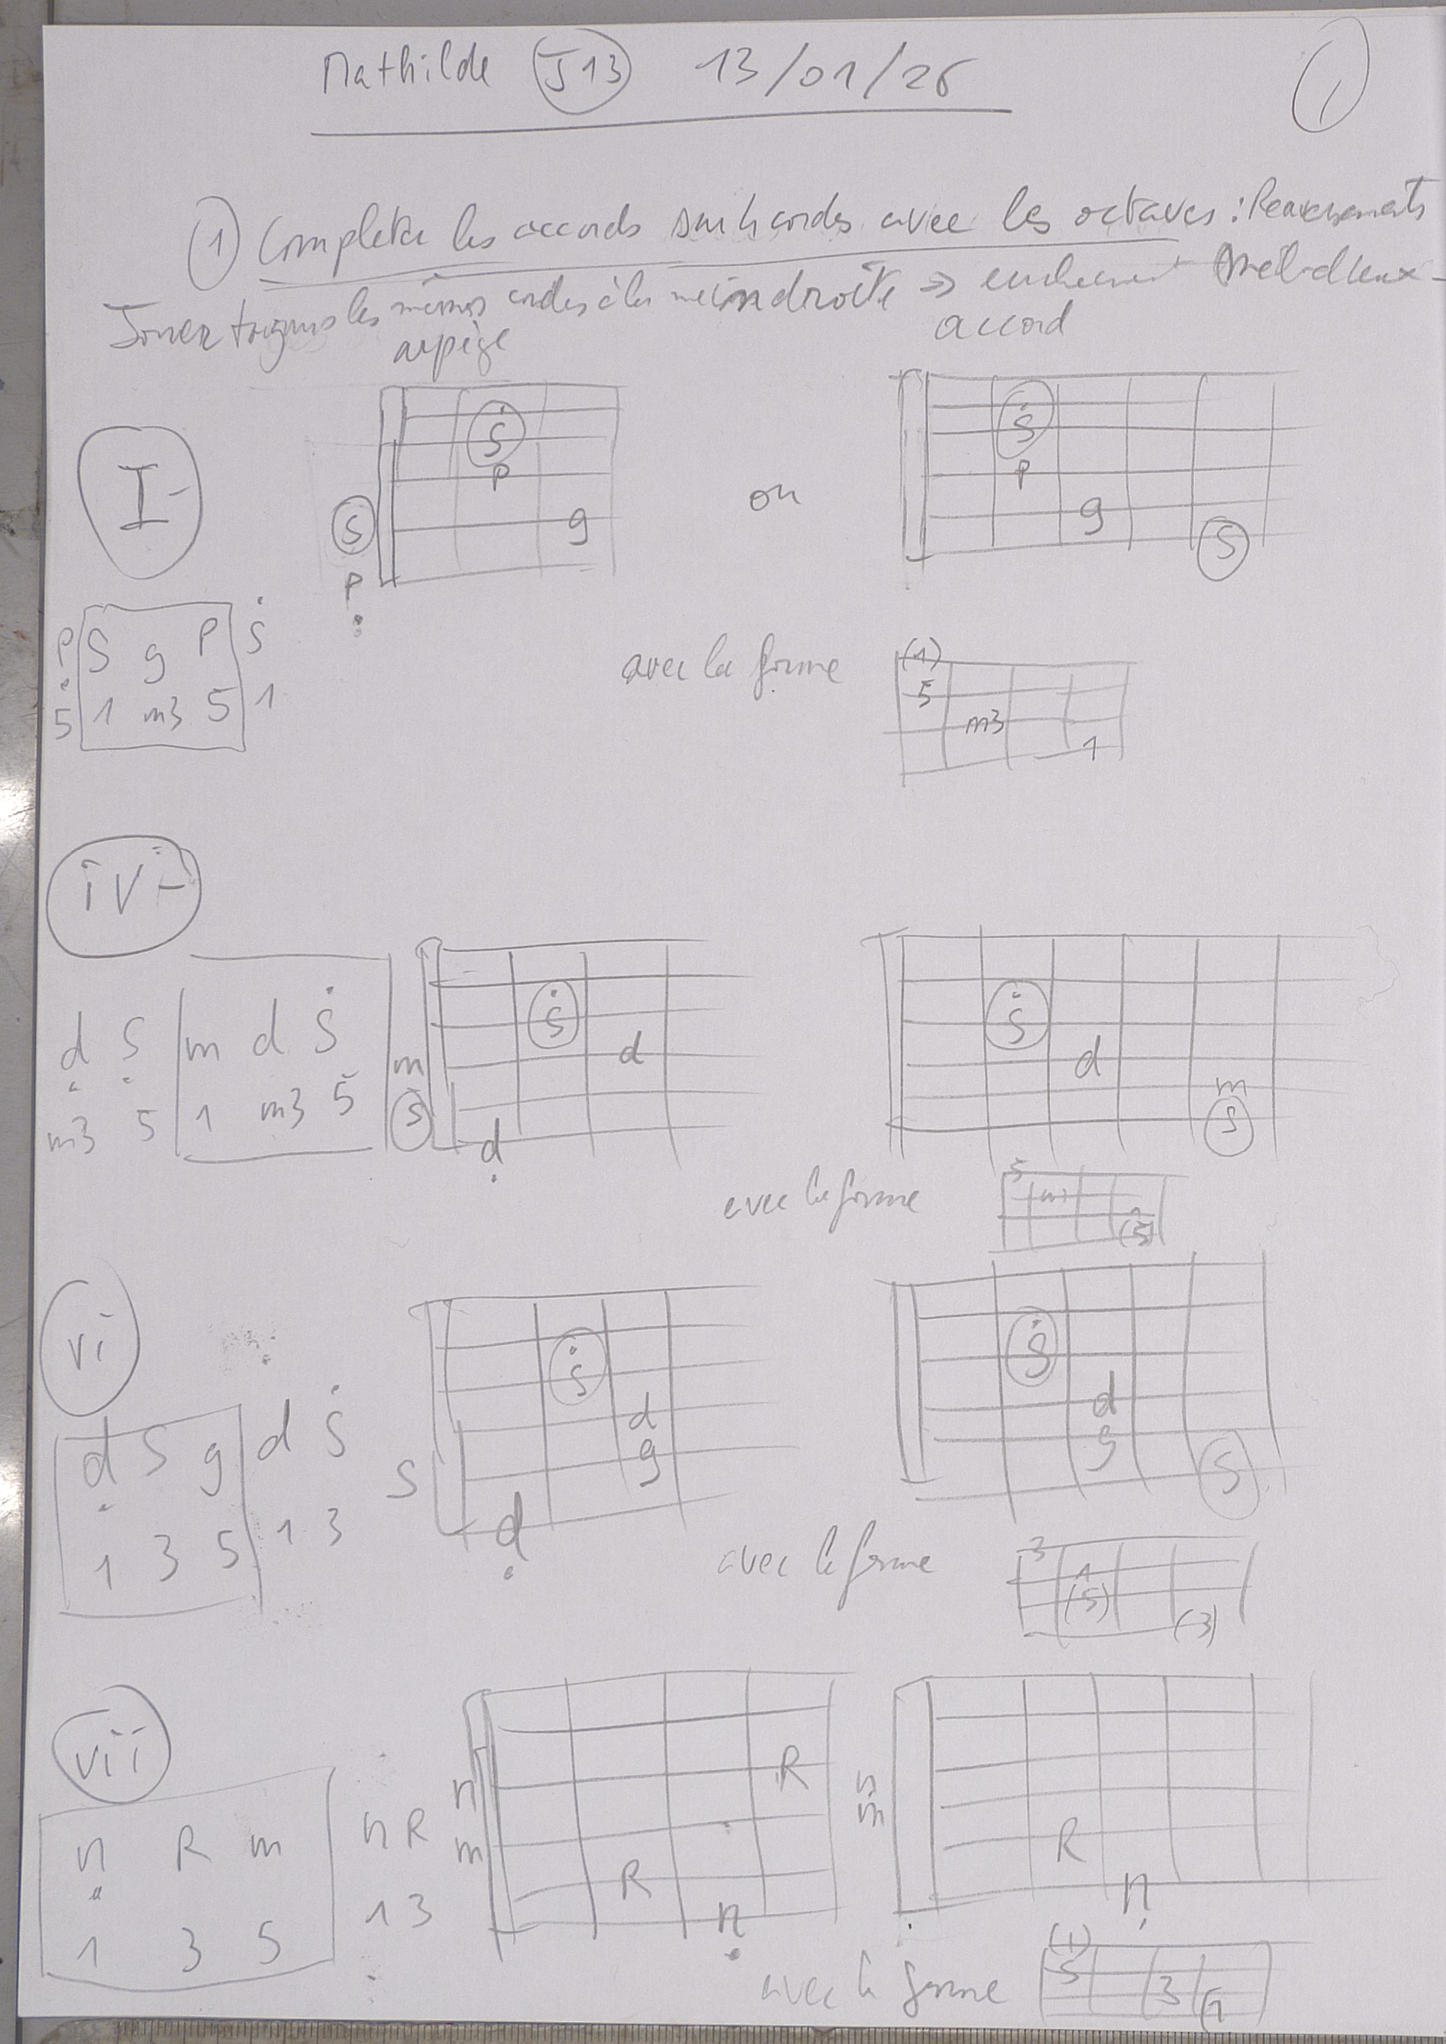 Mathilde J13 13/01/26
1
1 Completer les accords sur 4 cordes avec les octaves : Renversements
Jouer toujours les mêmes cordes à la main droite ⇒
arpège accord
I-
S
P
g
S
P
ou
S
P
g
S
P S g P S
5 1 m3 5 1
avec la forme
(1)
5
m3
1
iv-
d S m d S
m3 5 1 m3 5
S
d
m
S
d
S
d
m
S
avec la forme
5
(5)
vi
d S g d S
1 3 5 1 3
S
d
g
S
d
S
d
g
S
avec la forme
3
1
(5)
(3)
vii
n R m n R
1 3 5 1 3
n
m
R
R
n
n
m
R
n
avec la forme
(1)
5
3
1